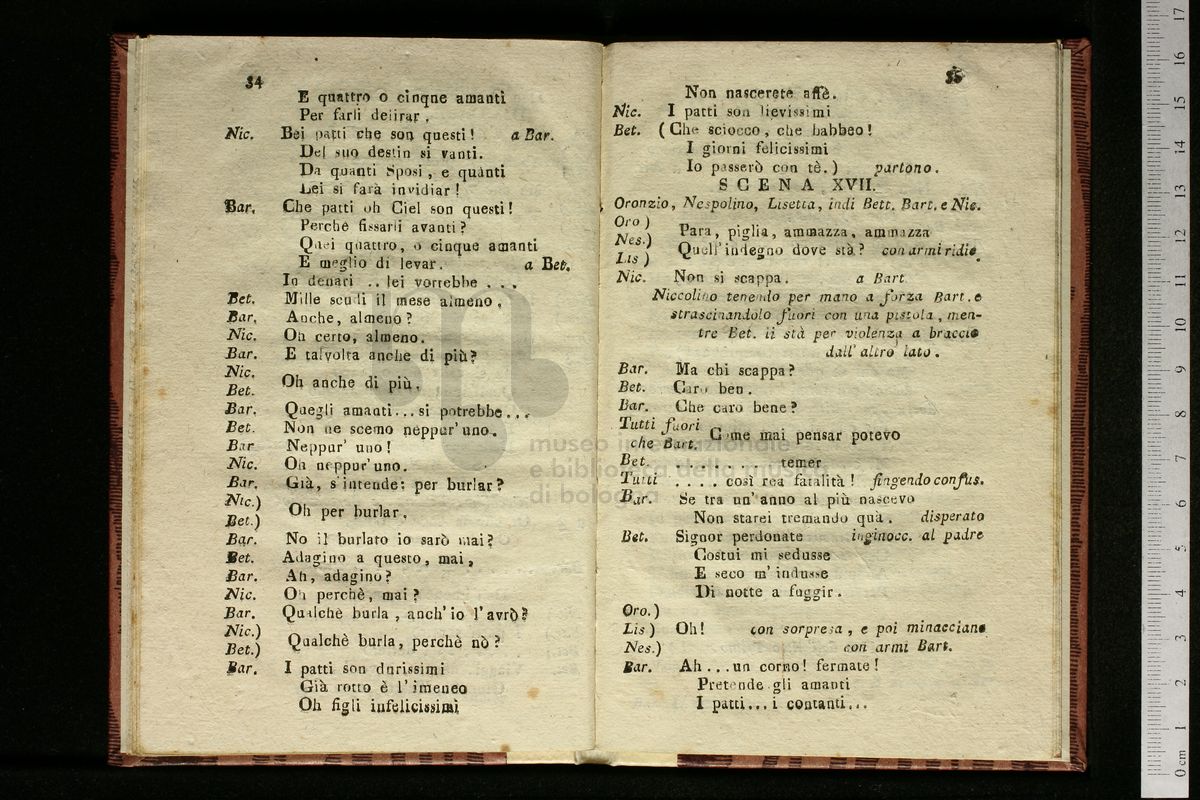 34
E quattro o cinque amanti
Per farli delirar.
Nic. Bei patti che son questi! a Bar.
Del suo destin si vanti.
Da quanti Sposi, e quanti
Lei si farà invidiar!
Bar. Che patti oh Ciel son questi!
Perchè fissarli avanti?
Quei quattro, o cinque amanti
E meglio di levar. a Bet.
In denari .. lei vorrebbe ...
Bet. Mille scudi il mese almeno.
Bar. Anche, almeno?
Nic. Oh certo, almeno.
Bar. E talvolta anche di più?
Nic.
Bet. Oh anche di più.
Bar. Quegli amanti...si potrebbe...
Bet. Non ne scemo neppur' uno.
Bar Neppur' uno!
Nic. Oh neppur' uno.
Bar. Già, s'intende: per burlar?
Nic.)
Bet.) Oh per burlar.
Bar. No il burlato io sarò mai?
Bet. Adagino a questo, mai,
Bar. Ah, adagino?
Nic. Oh perchè, mai?
Bar. Qualchè burla, anch' io l'avrò?
Nic.)
Bet.) Qualchè burla, perchè nò?
Bar. I patti son durissimi
Già rotto è l'imeneo
Oh figli infelicissimi
35
Non nascerete affè.
Nic. I patti son lievissimi
Bet. (Che sciocco, che babbeo!
I giorni felicissimi
Io passerò con tè.) partono.
SCENA XVII.
Oronzio, Nespolino, Lisetta, indi Bett. Bart. e Nic.
Oro )
Nes.) Para, piglia, ammazza, ammazza
Lis ) Quell' indegno dove stà? con armi ridic.
Nic. Non si scappa. a Bart
Niccolino tenendo per mano a forza Bart. e
strascinandolo fuori con una pistola, men-
tre Bet. li stà per violenza a braccio
dall' altro lato.
Bar. Ma chi scappa?
Bet. Caro ben.
Bar. Che caro bene?
Tutti fuori
che Bart. Come mai pensar potevo
Bet. . . . . . temer
Tutti . . . . così rea fatalità! fingendo confus.
Bar. Se tra un' anno al più nascevo
Non starei tremando quà. disperato
Bet. Signor perdonate inginocc. al padre
Costui mi sedusse
E seco m' indusse
Di notte a fuggir.
Oro.)
Lis ) Oh! con sorpresa, e poi minacciano
Nes.) con armi Bart.
Bar. Ah ... un corno! fermate!
Pretende gli amanti
I patti... i contanti...
museo internazionale
e biblioteca della musica
di bologna
0 cm 1 2 3 4 5 6 7 8 9 10 11 12 13 14 15 16 17